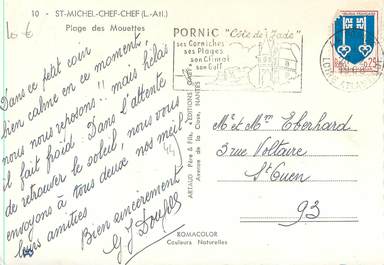 10 € 10 - ST-MICHEL-CHEF-CHEF (L.-Atl.)
Plage des Mouettes
Dans ce petit coin
bien calme en ce moment,
nous nous reposons !! mais hélas
il fait froid. Dans l'attente
de retrouver le soleil, nous vous
envoyons à tous deux nos meil
leurs amitiés
Bien sincèrement
PORNIC "Côte de Jade"
ses Corniches
ses Plages
son Climat
son Golf
REPUBLIQUE FRANÇAISE
0,25
ARTAUD Père & Fils, ÉDITIONS
Avenue de la Close, NANTES
ROMACOLOR
Couleurs Naturelles
Mr et Mme Eberhard
3 rue Voltaire
St Ouen
93